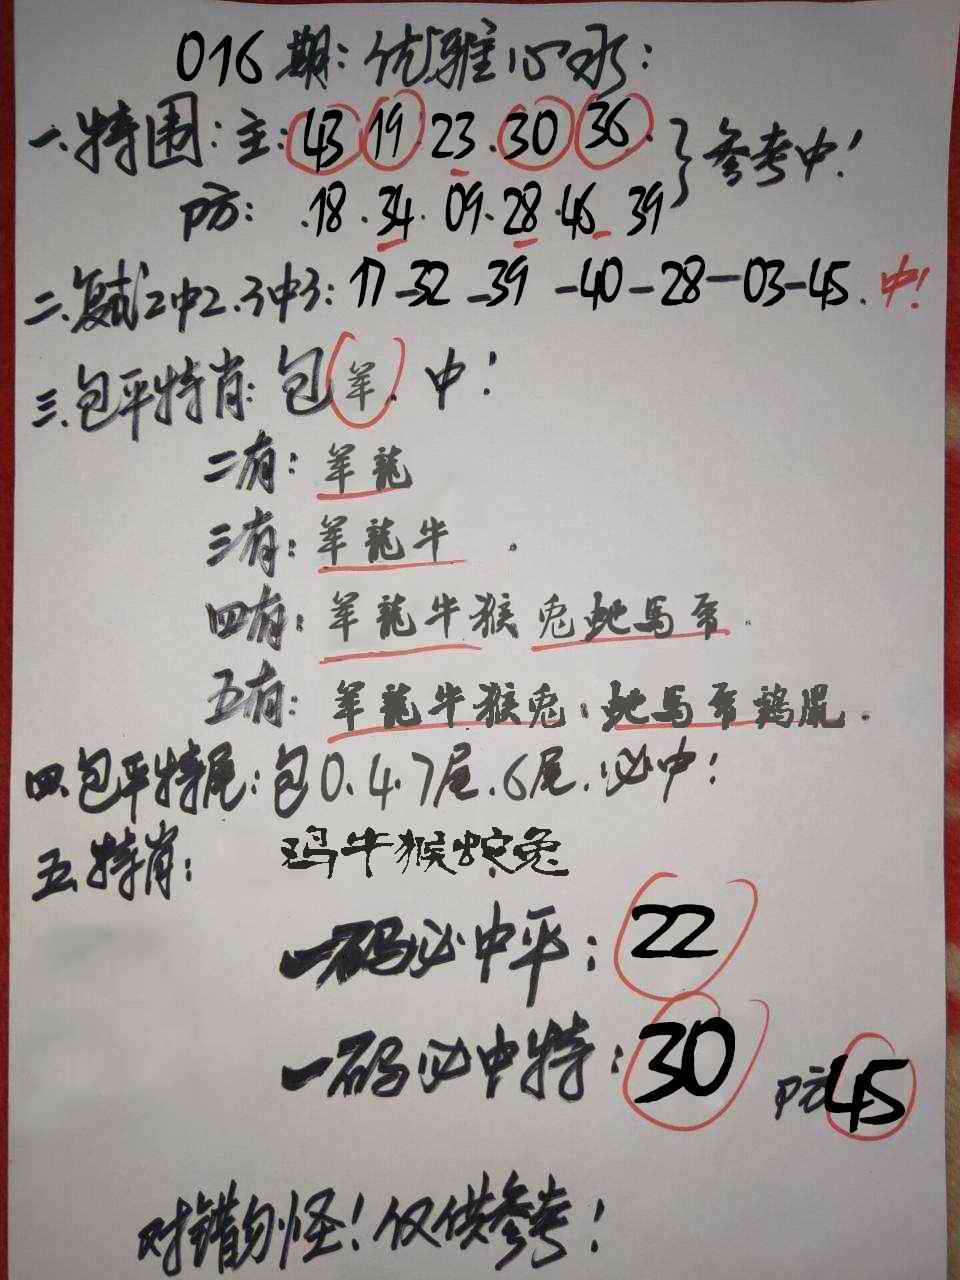 016期:优雅心水:
一.特围:主:43 19.23.30 36.
防: .18.34.09.28.45 39 参考中!
二.复式2中2.3中3:17-32-39-40-28-03-45.中!
三.包平特肖:包羊.中!
二有:羊龍
三有:羊龍牛.
四有:羊龍牛猴兔蛇馬
五有:羊龍牛猴兔蛇馬 鷄鼠.
四.包平特尾:包0.4.7尾.6尾.必中!
五.特肖: 鸡牛猴蛇兔
一码必中平:22
一码必中特:30 防45
对错勿怪!仅供参考!